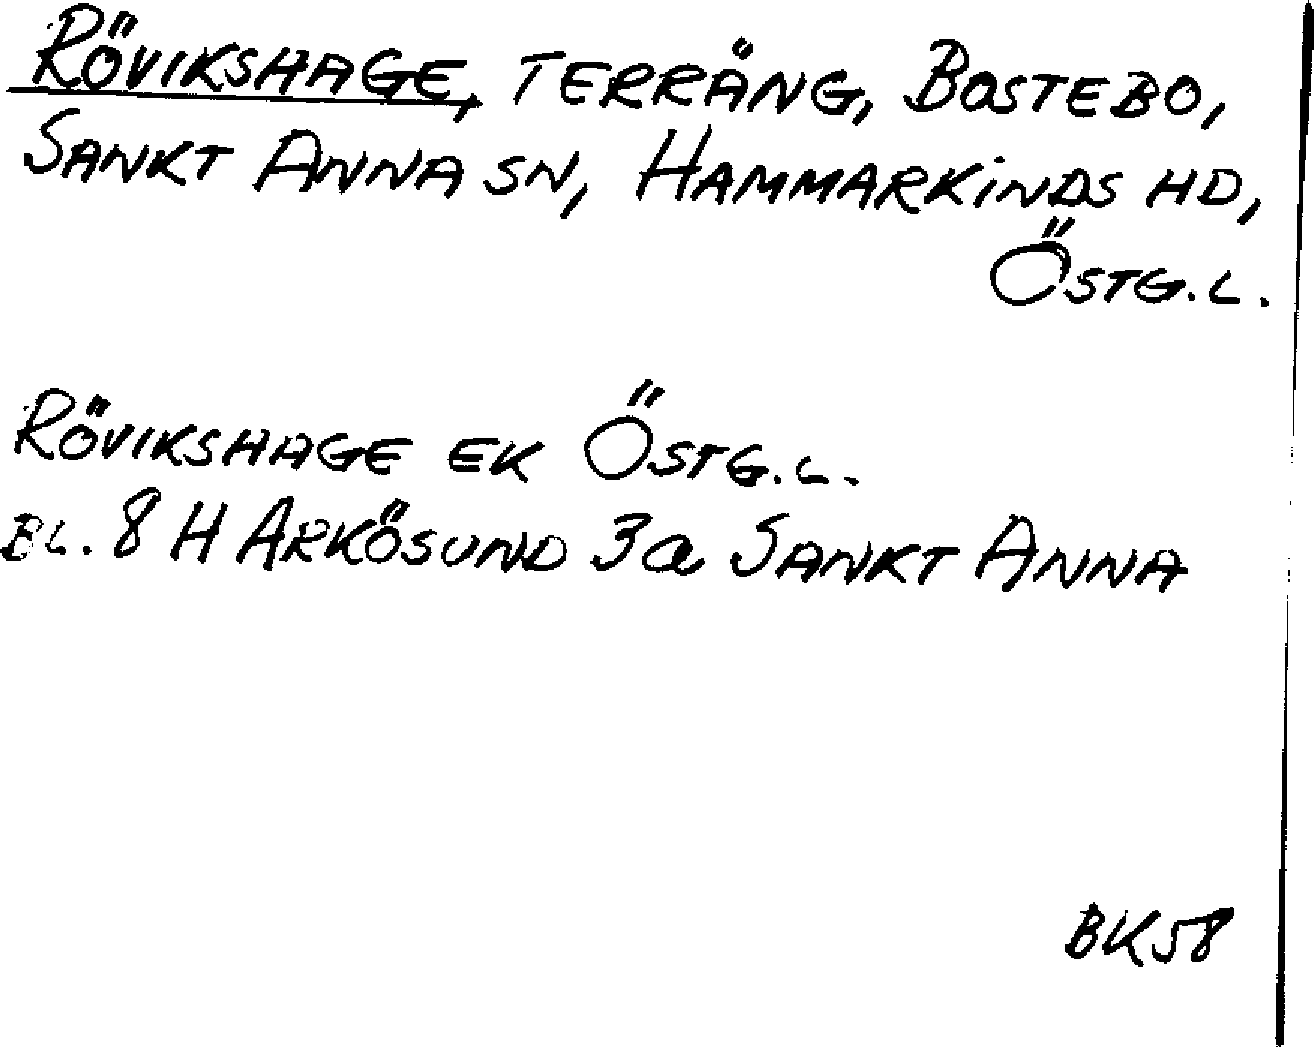 RÖVIKSHAGE, TERRÄNG, BOSTEBO,
SANKT ANNA SN, HAMMARKINDS HD,
ÖSTG.L.
RÖVIKSHAGE EK ÖSTG.L.
BL. 8 H ARKÖSUND 3a SANKT ANNA
BK58